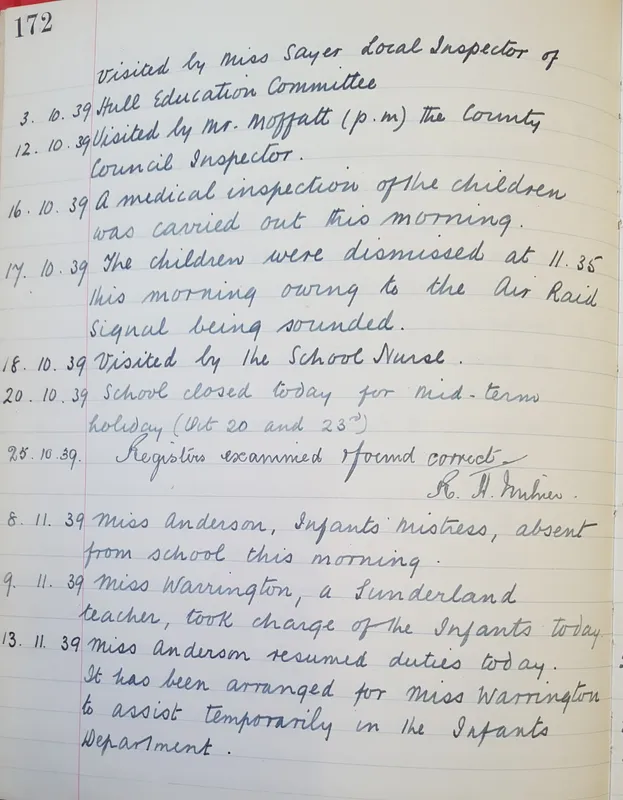 172
Visited by Miss Sayer Local Inspector of
3. 10. 39 Hull Education Committee
12. 10. 39 Visited by Mr. Moffatt (p.m) the County
Council Inspector.
16. 10. 39 A medical inspection of the children
was carried out this morning.
17. 10. 39 The children were dismissed at 11.35
this morning owing to the Air Raid
Signal being sounded.
18. 10. 39 Visited by the School Nurse.
20. 10. 39 School closed today for mid-term
holiday (Oct 20 and 23rd)
25. 10. 39. Registers examined & found correct
R. H. Milner.
8. 11. 39 Miss Anderson, Infants Mistress, absent
from school this morning.
9. 11. 39 Miss Warrington, a Sunderland
teacher, took charge of the Infants today.
13. 11. 39 Miss Anderson resumed duties today.
It has been arranged for Miss Warrington
to assist temporarily in the Infants
Department.